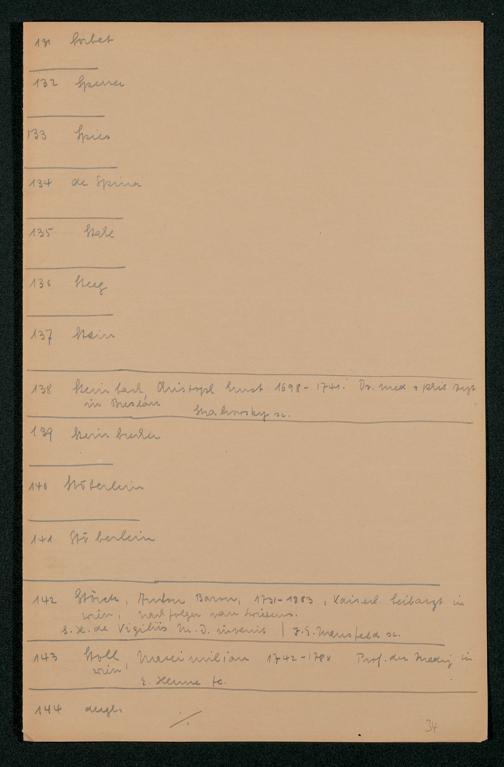 131 Sorbet
132 Spener
133 Spies
134 de Spina
135 Stahl
136 Steeg
137 Stein
138 Steinbach, Christoph Ernst 1698-1741. Dr. med + phil
in Breslau Strahowsky sc.
139
140 Stöberlein
141 Stöberlein
142 Störck, Anton Baron, 1731-1803, Kaiserl. Leibarzt in
Wien, Nachfolger van Swietens.
de Vigiliis M. D. | J. E. Mansfeld sc.
143 Stoll, Maximilian 1742-178 Prof. der Mediz in
Wien,
E. Henne fc.
144 desgl.
34